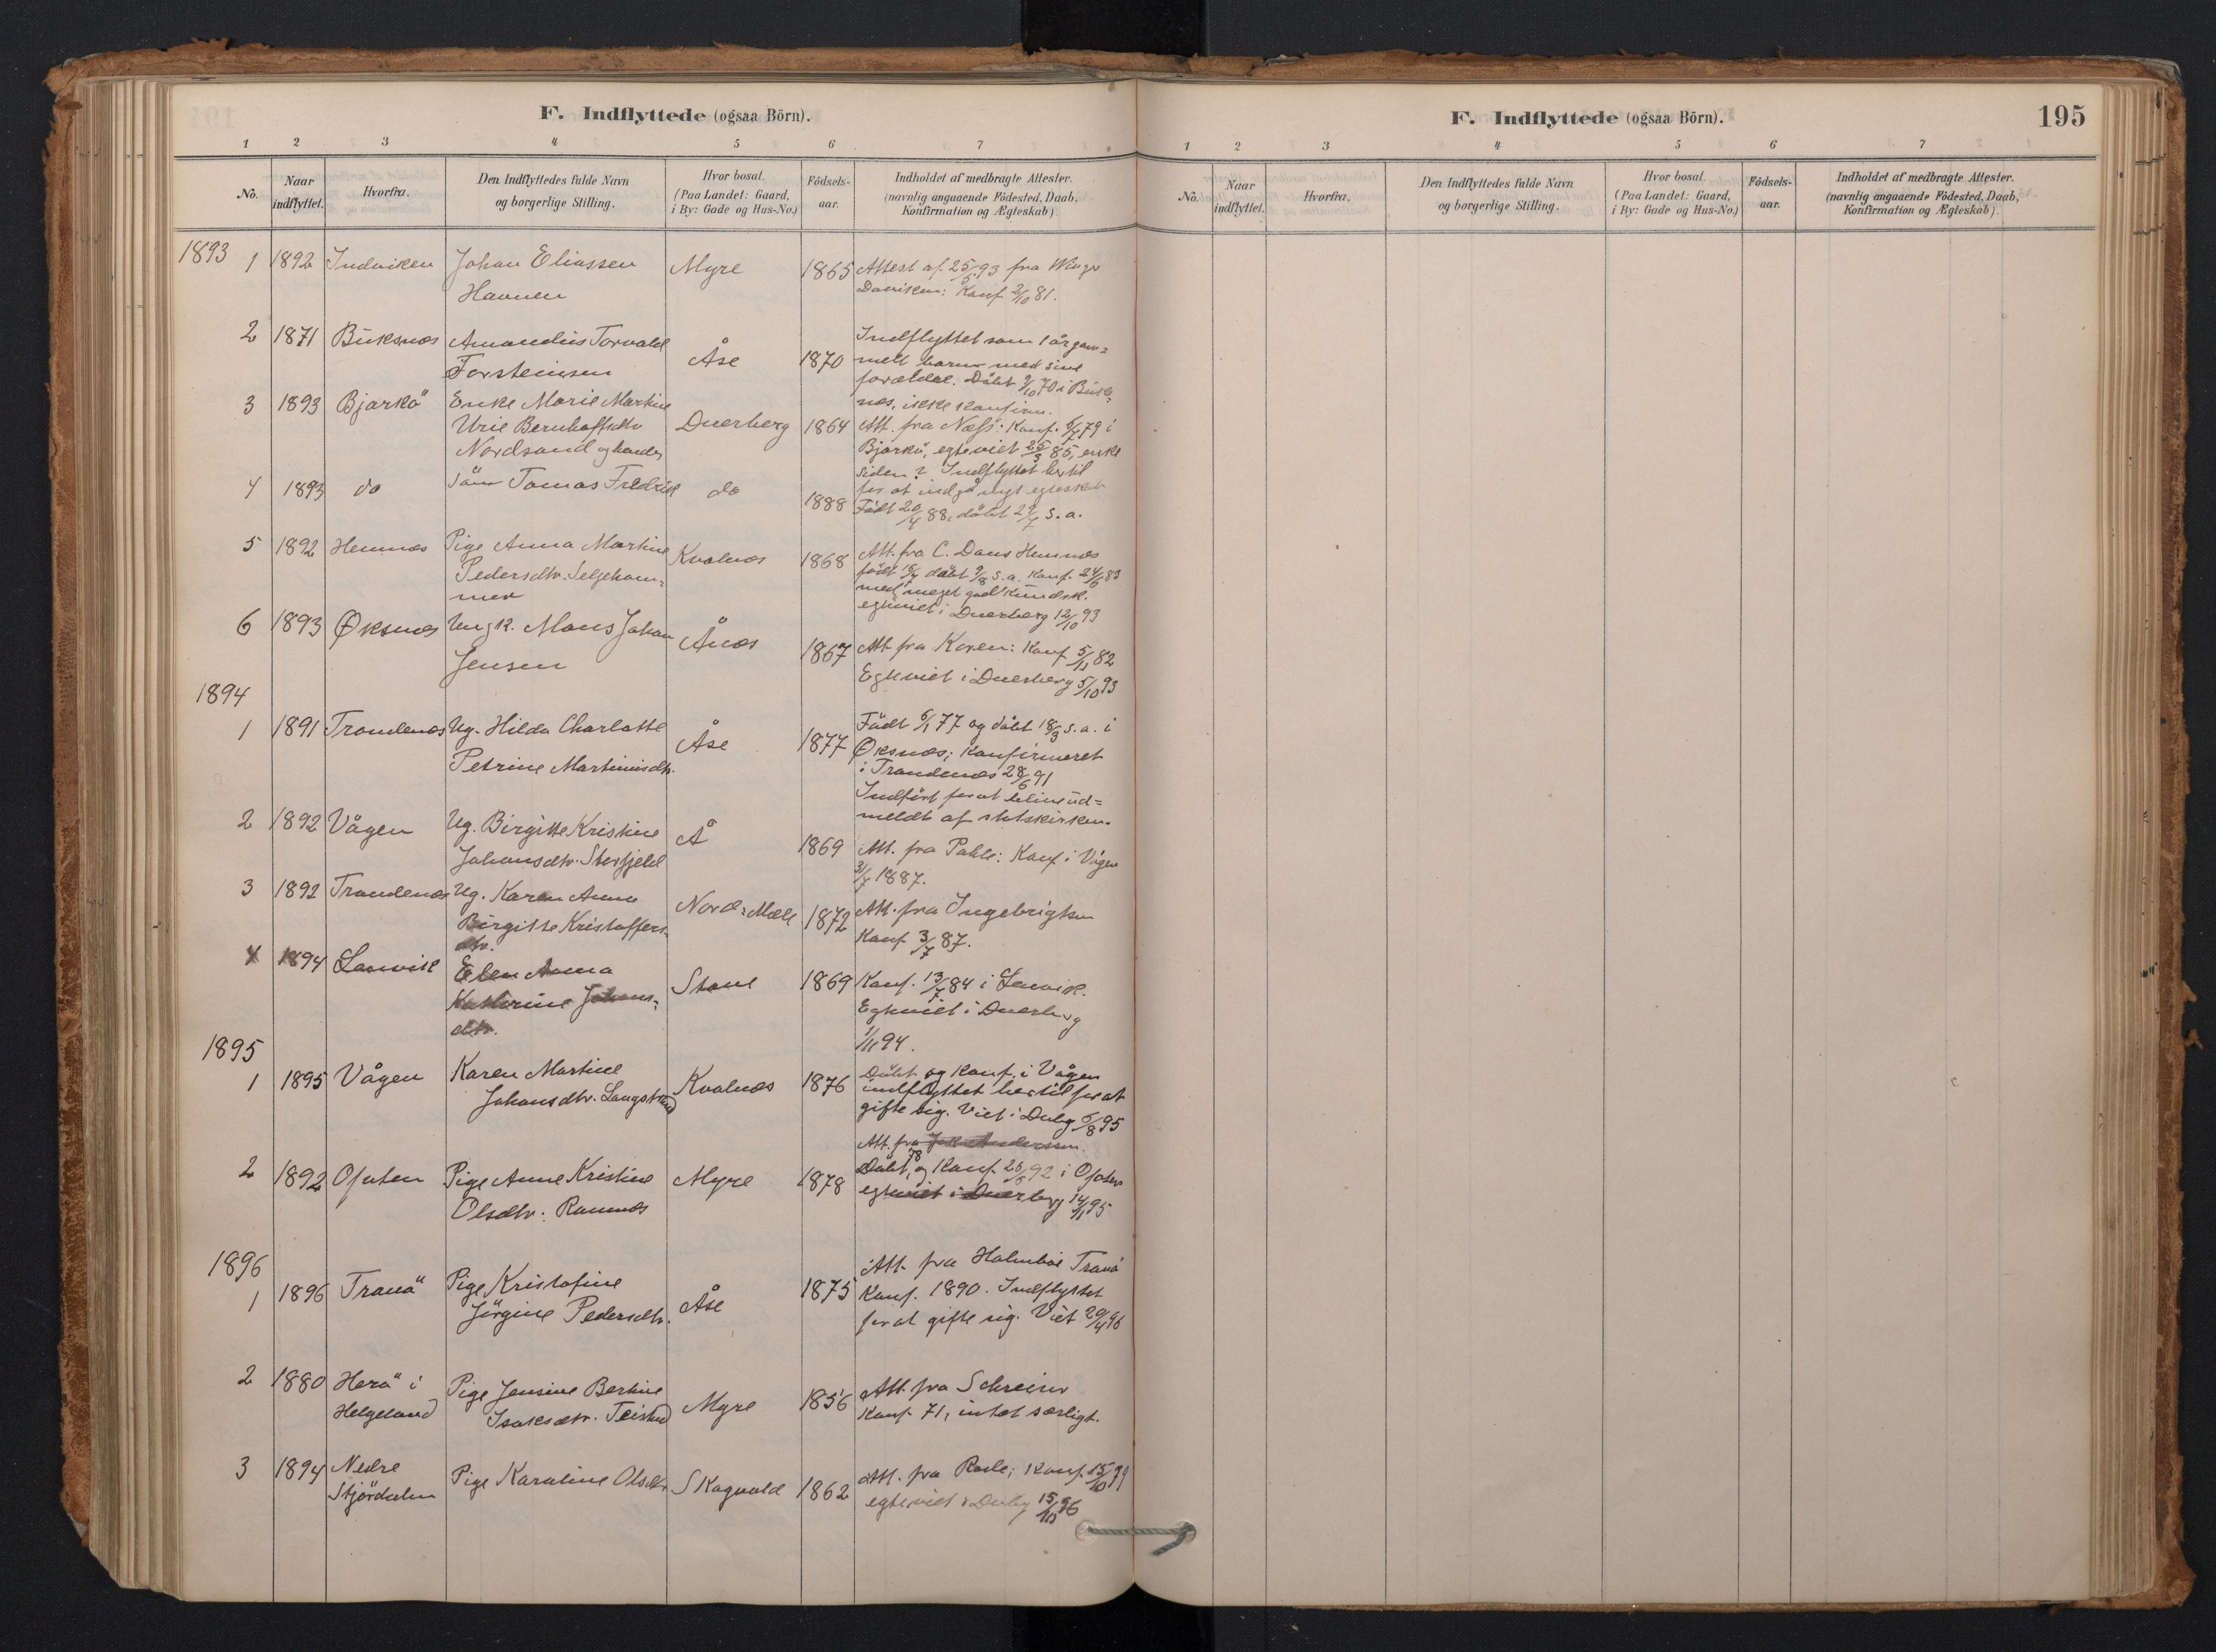 F. Indflyttede (ogsaa Börn).
1 2 3 4 5 6 7
No.
Naar indflyttet.
Hvorfra.
Den Indflyttedes fulde Navn og borgerlige Stilling.
Hvor bosat. (Paa Landet: Gaard, i By: Gade og Hus-No.)
Födsels-aar.
Indholdet af medbragte Attester. (navnlig angaaende Födested, Daab, Konfirmation og Ægteskab).
1893
1 1892 Indviken Johan Eliassen Myre 1865 Attest af 25/5 93 fra
Havnen Konf 2/10 81.
2 1871 Buksnæs Amandus Torvald Åse 1870 Indflyttet som 1 år gam=
Torsteinsen melt barn med sine
forældre. Döbt 9/10 70 i Buks=
næs, ikke konfirm.
3 1893 Bjarkö Enke Marie Martine Dverberg 1864 Att. fra Næss: Konf. 6/7 79 i
Urie Bernhoffsdtr Bjarkö, egteviet 25/3 85, enke
Nordsand og hendes siden ? Indflyttet hertil
4 1893 do sön Tomas Fredrik do 1888 for at indgå nyt egteskab
Födt 20/4 88, döbt 29/7 s. a.
5 1892 Hemnæs Pige Anna Martine Kvalnæs 1868 Att. fra C. Daus Hemnæs
Pedersdtr. Seljeham= födt 15/4 döbt 9/8 s. a. Konf. 24/6 83
mer med meget god kundsk.
egteviet i Dverberg 12/10 93
6 1893 Øksnæs Ungk. Mons Johan Ånæs 1867 Att. fra Koren: Konf 5/11 82
Jensen Egteviet i Dverberg 5/10 93
1894
1 1891 Trondenæs Ug. Hilda Charlotte Åse 1877 Födt 6/1 77 og döbt 18/3 s. a. i
Petrine Martinusdtr. Øksnæs; konfirmeret
i Trondenæs 28/6 91
Indfört for at blive ud=
meldt af statskirken.
2 1892 Vågen Ug. Birgitte Kristine Å 1869 Att. fra Pahle: Konf. i Vågen
Johansdtr. Storfjeld 3/7 1887.
3 1892 Trondenæs Ug. Karen Anna Nordre Mæle 1872 Att. fra Ingebrigtsen
Birgitte Kristoffers= Konf 3/7 87.
dtr.
4 1894 Lenvik Elen Anna Stave 1869 Konf. 13/7 84 i Lenvik.
Kathrine Johans= Egteviet i Dverberg
dtr. 1/11 94.
1895
1 1895 Vågen Karen Martine Kvalnæs 1876 Döbt og konf. i Vågen
Johansdtr. Langstrand indflyttet hertil for at
gifte sig. Viet i Dvbg 6/8 95
Att. fra
2 1892 Ofoten Pige Anne Kristine Myre 1878 Döbt 78 og Konf 26/6 92 i Ofoten
Olsdtr. Ramnæs egteviet i Dverberg 14/1 95
1896
1 1896 Tranö Pige Kristofine Åse 1875 Att. fra Holmboe Tranö
Jörgine Pedersdtr. Konf. 1890. Indflyttet
for at gifte sig. Viet 20/4 96
2 1880 Herö i Pige Jensine Bertine Myre 1856 Att. fra Schreiner
Helgeland Isaksdtr. Konf 71, intet særligt.
3 1894 Nedre Pige Karoline Olsdtr Skogvold 1862 Att. fra Konf. 15/10 79
Stjördalen egteviet i Dvbg 15/10 96
195
F. Indflyttede (ogsaa Börn).
1 2 3 4 5 6 7
No.
Naar indflyttet.
Hvorfra.
Den Indflyttedes fulde Navn og borgerlige Stilling.
Hvor bosat. (Paa Landet: Gaard, i By: Gade og Hus-No.)
Födsels-aar.
Indholdet af medbragte Attester. (navnlig angaaende Födested, Daab, Konfirmation og Ægteskab).